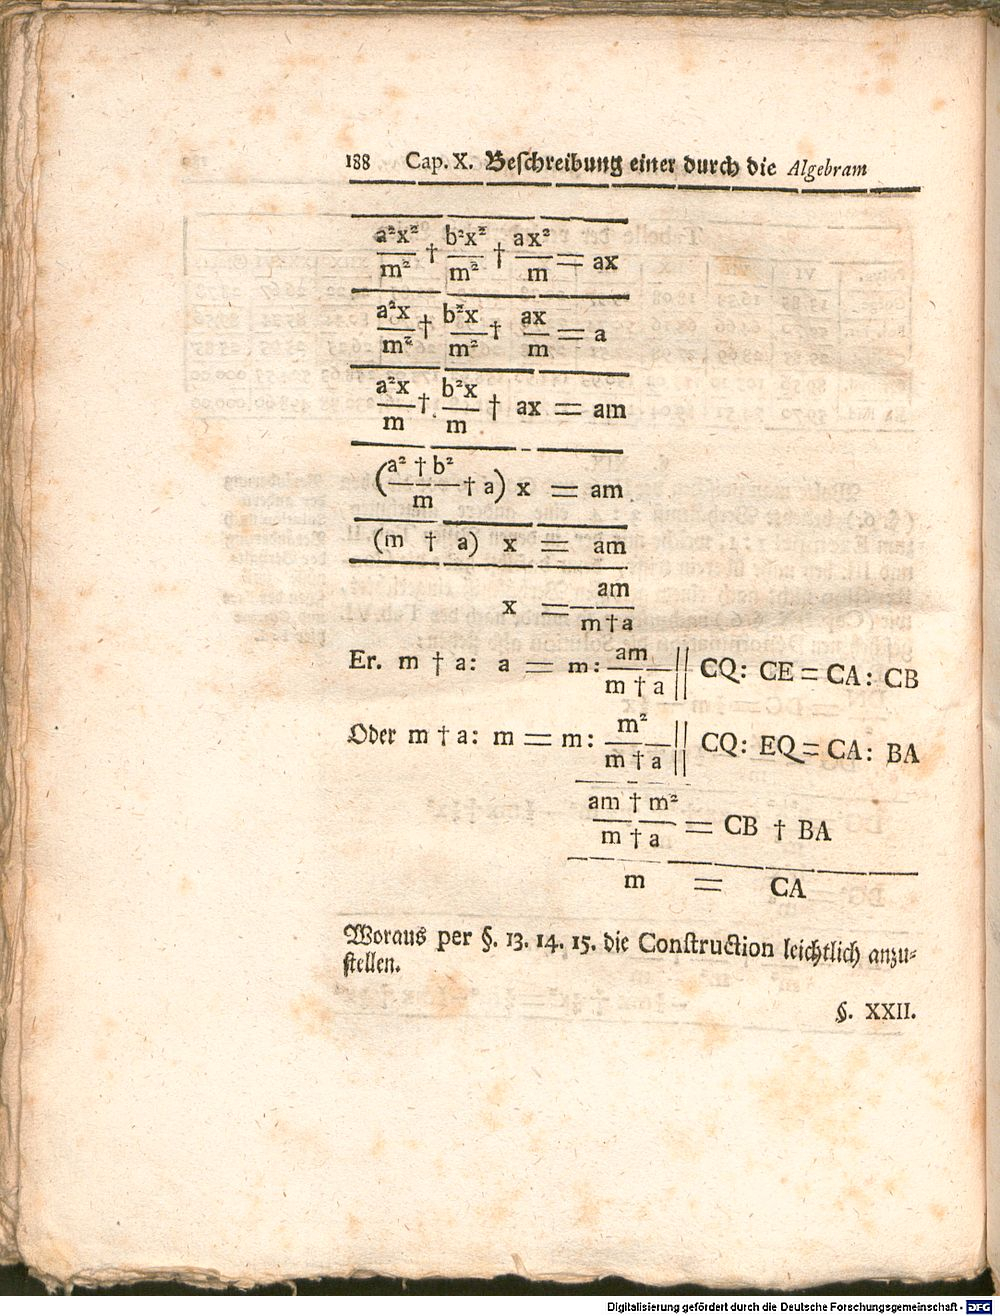 188 Cap. X. Beſchreibung einer durch die Algebram
a²x²/m² † b²x²/m² † ax²/m = ax
a²x/m² † b²x/m² † ax/m = a
a²x/m † b²x/m † ax = am
(a² † b²/m † a) x = am
(m † a) x = am
x = am/m † a
Er. m † a: a = m: am/m † a || CQ: CE = CA: CB
Oder m † a: m = m: m²/m † a || CQ: EQ = CA: BA
am † m²/m † a = CB † BA
m = CA
Woraus per §. 13. 14. 15. die Conſtruction leichtlich anzu⸗
ſtellen.
§. XXII.
Digitalisierung gefördert durch die Deutsche Forschungsgemeinschaft - DFG